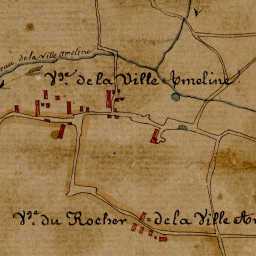 eau de la Ville Ameline
Vge. de la Ville Ameline
Vge. du Rocher de la Ville Am